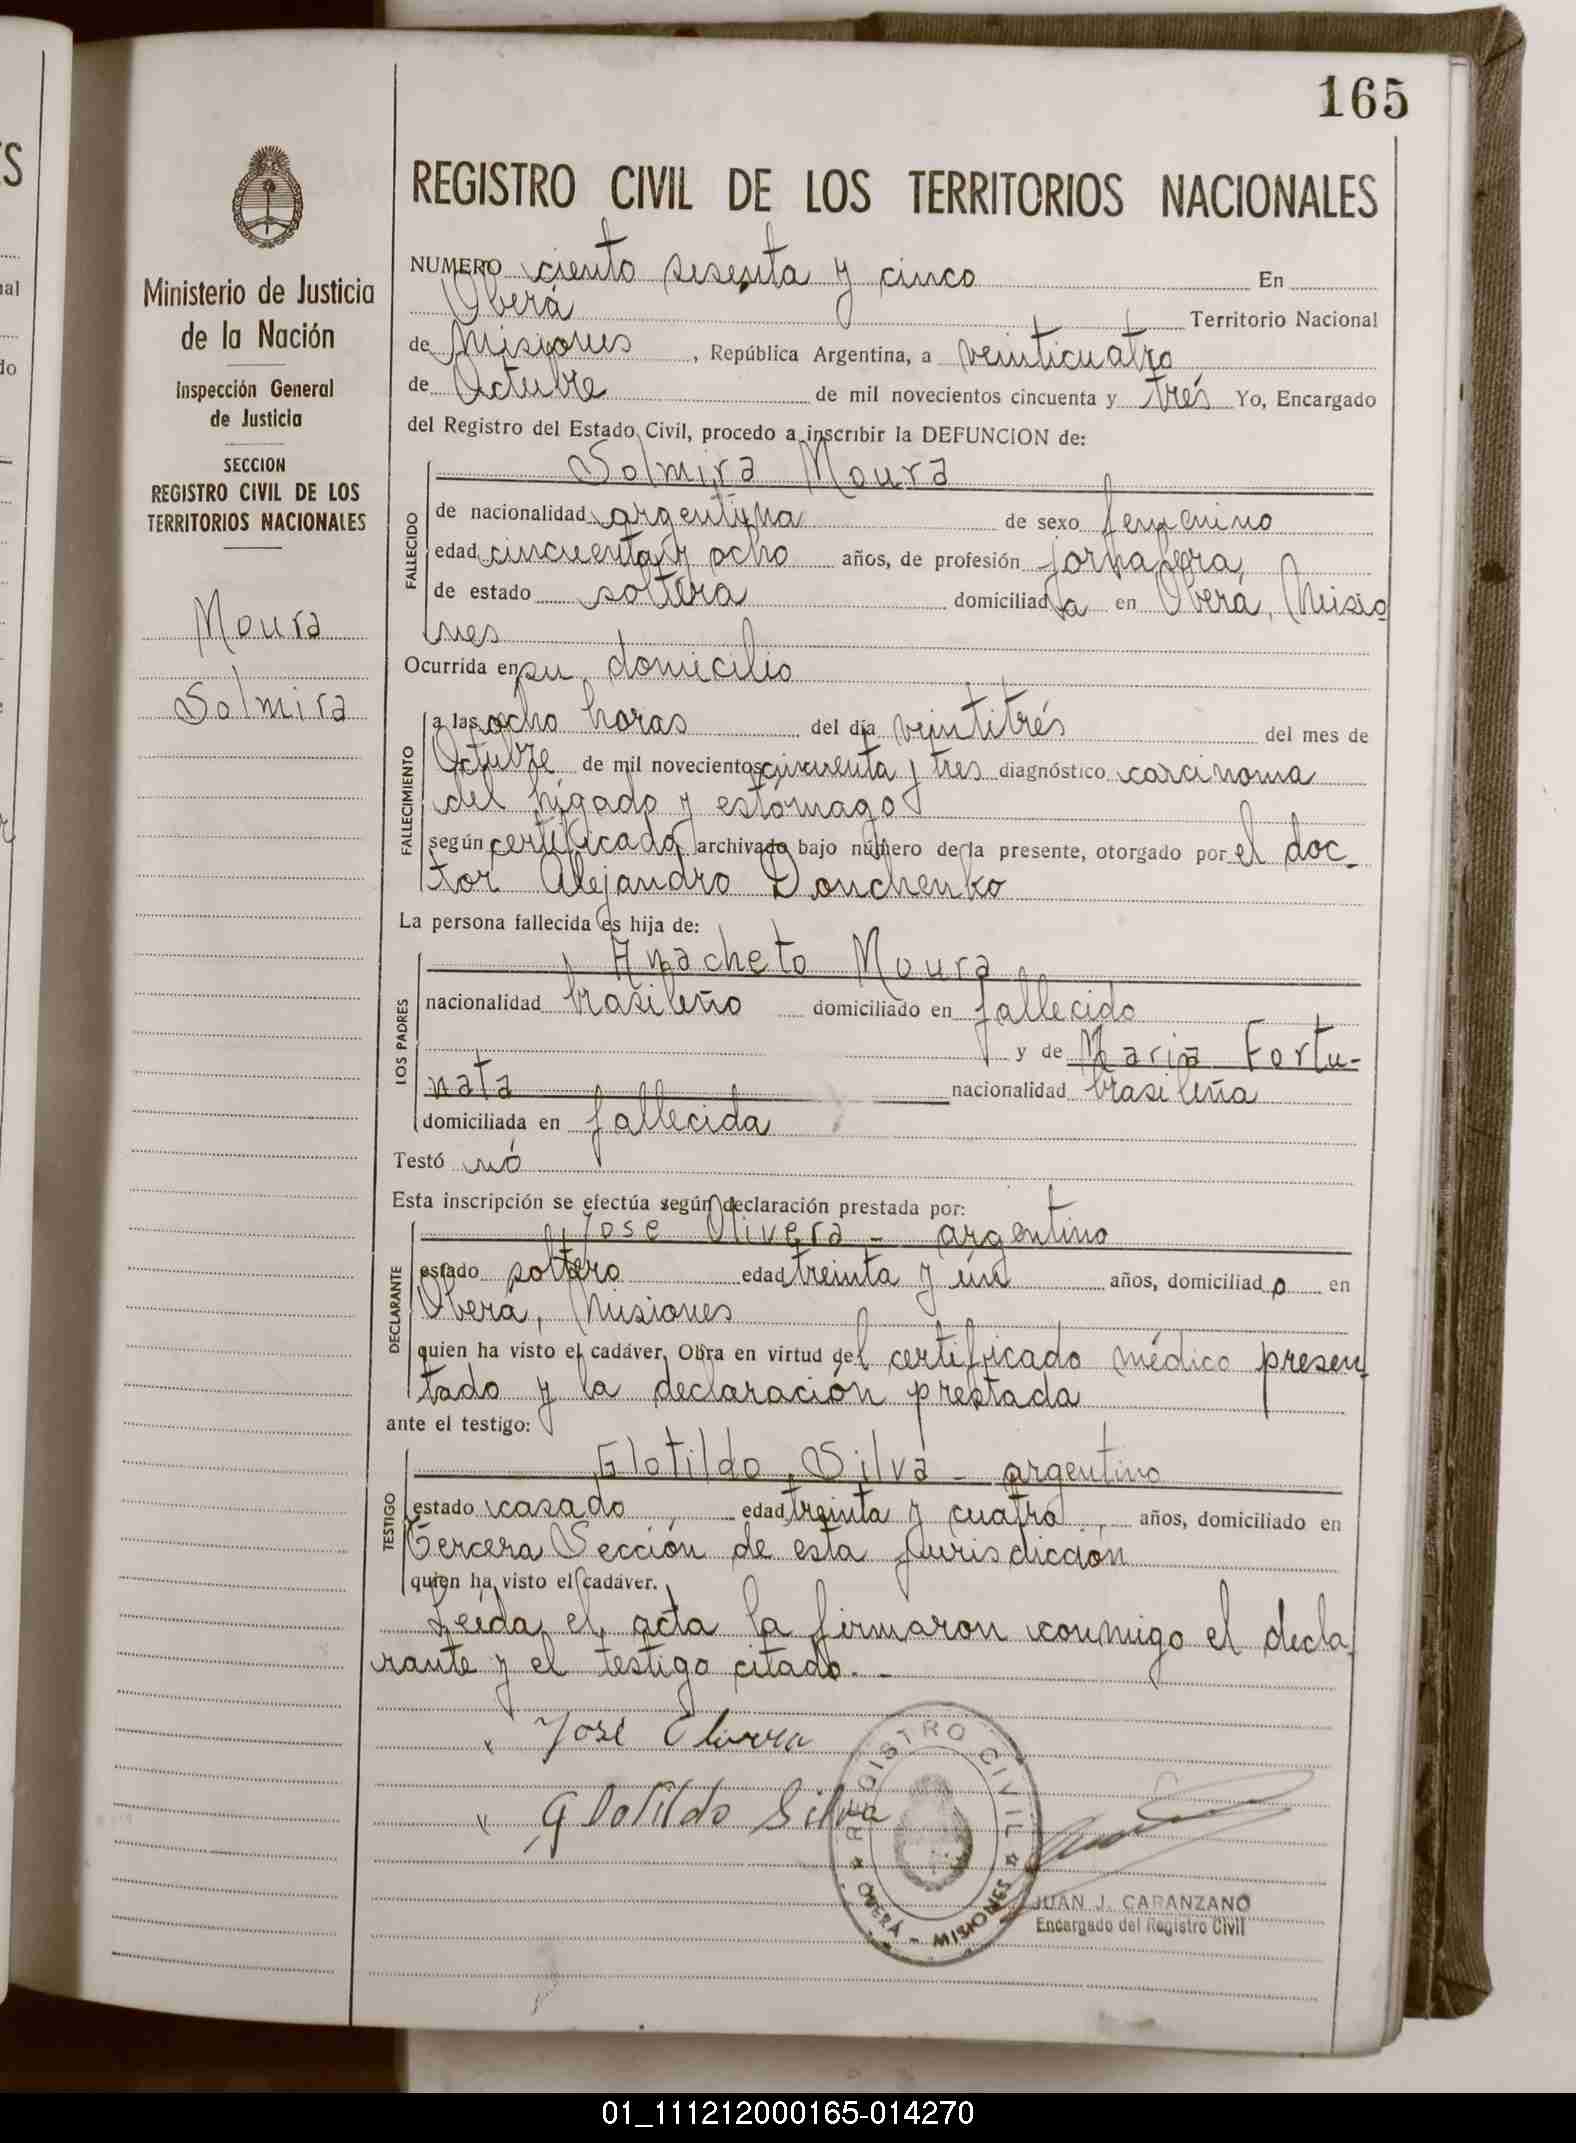 165
REGISTRO CIVIL DE LOS TERRITORIOS NACIONALES
Ministerio de Justicia
de la Nación
Inspección General
de Justicia
SECCION
REGISTRO CIVIL DE LOS
TERRITORIOS NACIONALES
Moura
Solmira
NUMERO ciento sesenta y cinco En
Oberá Territorio Nacional
de Misiones, República Argentina, a veinticuatro
de Octubre de mil novecientos cincuenta y trés Yo, Encargado
del Registro del Estado Civil, procedo a inscribir la DEFUNCION de:
FALLECIDO
Solmira Moura
de nacionalidad argentina de sexo femenino
edad cincuenta y ocho años, de profesión jornalera,
de estado soltera domiciliada en Oberá, Misio
nes
Ocurrida en su domicilio
FALLECIMIENTO
a las ocho horas del día veintitrés del mes de
Octubre de mil novecientos cincuenta y tres diagnóstico carcinoma
del hígado y estomago
según certificado archivado bajo número de la presente, otorgado por el doc-
tor Alejandro Donchenko
La persona fallecida es hija de:
LOS PADRES
Anacheto Moura
nacionalidad brasileño domiciliado en fallecido
y de Maria Fortu-
nata nacionalidad brasileña
domiciliada en fallecida
Testó nó
Esta inscripción se efectúa según declaración prestada por:
DECLARANTE
Jose Olivera - argentino
estado soltero edad treinta y un años, domiciliado en
Oberá, Misiones
quien ha visto el cadáver. Obra en virtud del certificado médico presen-
tado y la declaración prestada
ante el testigo:
TESTIGO
Glotildo Silva - argentino
estado casado, edad treinta y cuatro, años, domiciliado en
Tercera Sección de esta Jurisdiccion
quien ha visto el cadáver.
Leida el acta la firmaron conmigo el decla
rante y el testigo citado.-
José Olivera
Glotildo Silva
REGISTRO CIVIL
OBERÁ - MISIONES
JUAN J. CARANZANO
Encargado del Registro Civil
01_111212000165-014270